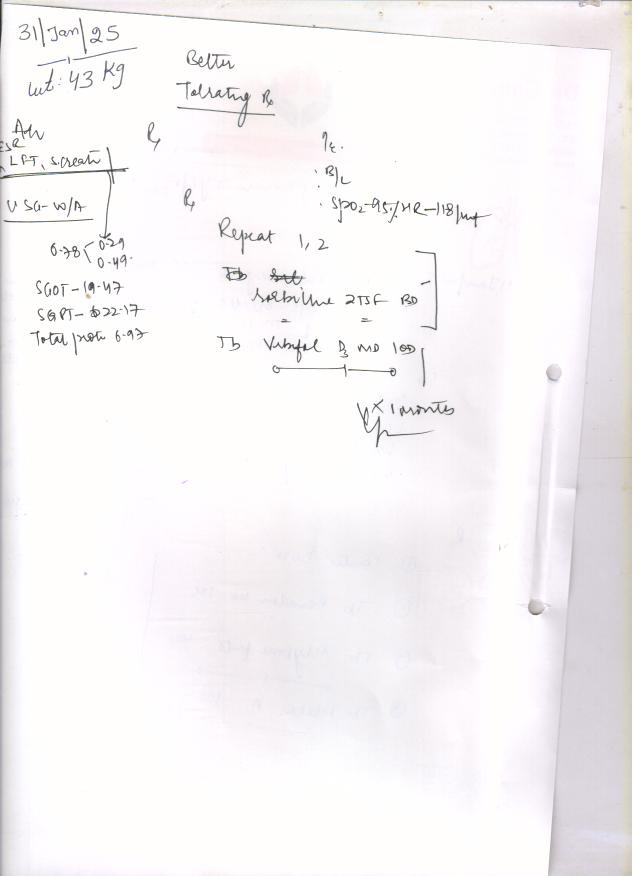 31/Jan/25
wt: 43 Kg
Better
Tolrating Rx
Adv
ESR
LFT, S.creati
USG-W/A
0.78 < 0.29
0.49
SGOT - 19.47
SGPT - 22.17
Total prote 6.97
Rx
O/E.
: B/L
: SpO2-95%/HR-118/mt
Rx
Repeat 1, 2
Sorbiline 2TSF BD
Tb
OD
x 1 months